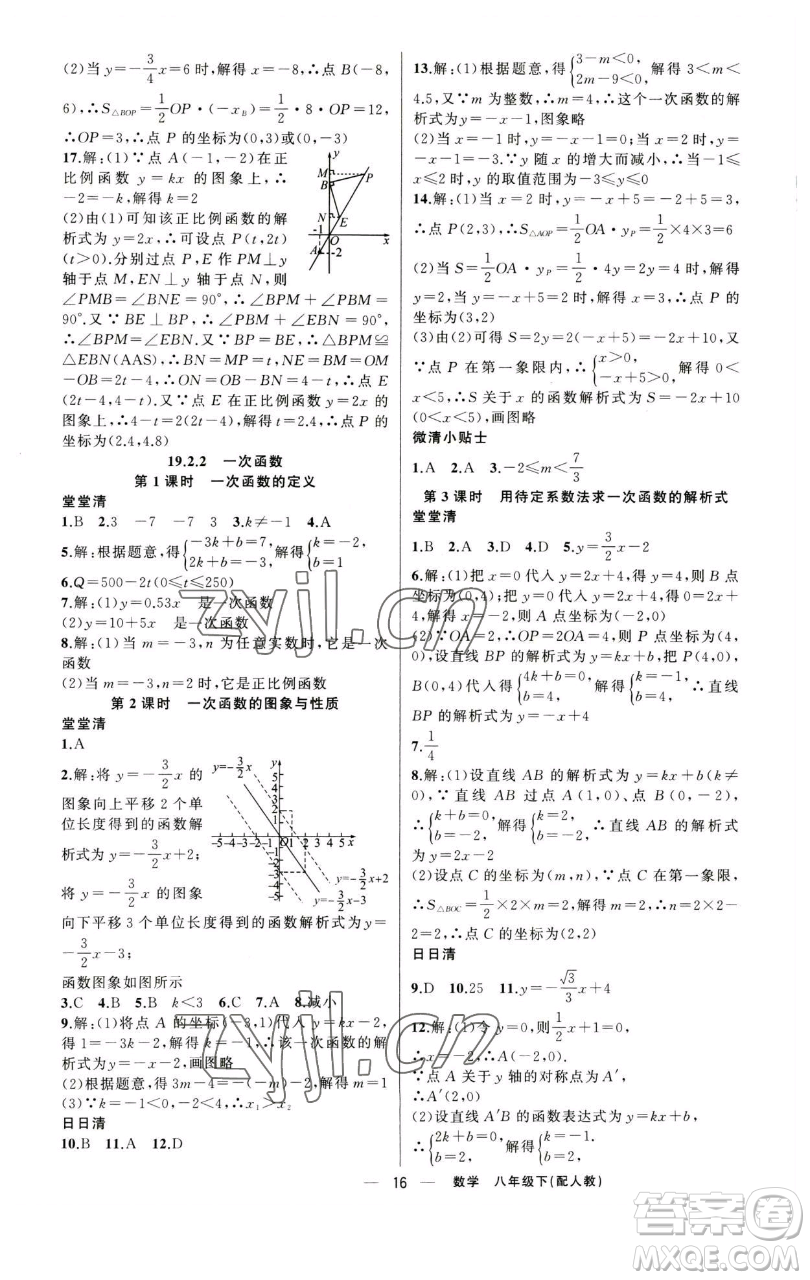 (2)当 y=-3/4x=6 时,解得 x=-8,∴点 B(-8,
6),∴S△BOP=1/2OP·(-xB)=1/2·8·OP=12,
∴OP=3,∴点 P 的坐标为(0,3)或(0,-3)
17.解:(1)∵点 A(-1,-2)在正
比例函数 y=kx 的图象上,∴
-2=-k,解得 k=2
(2)由(1)可知该正比例函数的解
析式为 y=2x,∴可设点 P(t,2t)
(t>0).分别过点 P,E 作 PM⊥y
轴于点 M,EN⊥y 轴于点 N,则
∠PMB=∠BNE=90°,∴∠BPM+∠PBM=
90°.又∵BE⊥BP,∴∠PBM+∠EBN=90°,
∴∠BPM=∠EBN.又∵BP=BE,∴△BPM≌
△EBN(AAS),∴BN=MP=t,NE=BM=OM
-OB=2t-4,∴ON=OB-BN=4-t,∴点 E
(2t-4,4-t).又∵点 E 在正比例函数 y=2x 的
图象上,∴4-t=2(2t-4),解得 t=2.4,∴点 P 的
坐标为(2.4,4.8)
y
M
P
B
N
E
-1
O
x
A
-2
19.2.2 一次函数
第1课时 一次函数的定义
堂堂清
1.B 2.3 -7 -7 3 3.k≠-1 4.A
5.解:根据题意,得{-3k+b=7, 2k+b=-3,解得{k=-2, b=1
6.Q=500-2t(0≤t≤250)
7.解:(1)y=0.53x 是一次函数
(2)y=10+5x 是一次函数
8.解:(1)当 m=-3,n 为任意实数时,它是一次
函数
(2)当 m=-3,n=2 时,它是正比例函数
第2课时 一次函数的图象与性质
堂堂清
1.A
2.解:将 y=-3/2x 的
图象向上平移 2 个单
位长度得到的函数解
析式为 y=-3/2x+2;
将 y=-3/2x 的图象
向下平移 3 个单位长度得到的函数解析式为 y=
-3/2x-3;
函数图象如图所示
y=-3/2x
y
-5-4-3-2-1 O 1 2 3 4 5 x
y=-3/2x+2
y=-3/2x-3
3.C 4.B 5.B k<3 6.C 7.A 8.减小
9.解:(1)将点 A 的坐标(-3,1)代入 y=kx-2,
得-3k-2=1,解得 k=-1,∴该一次函数的解
析式为 y=-x-2,画图略
(2)根据题意,得 3m-4=-(-m)-2,解得 m=1
(3)∵k=-1<0,-2<4,∴x₁>x₂
日日清
10.B 11.A 12.D
13.解:(1)根据题意,得{3-m<0, 2m-9<0,解得 3<m<
4.5,又∵m 为整数,∴m=4,∴这个一次函数的解
析式为 y=-x-1,图象略
(2)当 x=-1 时,y=-x-1=0;当 x=2 时,y=
-x-1=-3.∵y 随 x 的增大而减小,∴当-1≤x
≤2 时,y 的取值范围为-3≤y≤0
14.解:(1)当 x=2 时,y=-x+5=-2+5=3,
∴点 P(2,3),∴S△AOP=1/2OA·yP=1/2×4×3=6
(2)当 S=1/2OA·yP=1/2·4y=2y=4 时,解得
y=2,当 y=-x+5=2 时,解得 x=3,∴点 P 的
坐标为(3,2)
(3)由(2)可得 S=2y=2(-x+5)=-2x+10,又
∵点 P 在第一象限内,∴{x>0, -x+5>0,解得 0<
x<5,∴S 关于 x 的函数解析式为 S=-2x+10
(0<x<5),画图略
微清小贴士
1.A 2.A 3.-2≤m<7/3
第3课时 用待定系数法求一次函数的解析式
堂堂清
1.B 2.A 3.D 4.D 5.y=3/2x-2
6.解:(1)把 x=0 代入 y=2x+4,得 y=4,则 B 点
坐标为(0,4);把 y=0 代入 y=2x+4,得 2x+4=
0,解得 x=-2,则 A 点坐标为(-2,0)
(2)∵OA=2,∴OP=2OA=4,则 P 点坐标为(4,
0),设直线 BP 的解析式为 y=kx+b,把 P(4,0),
B(0,4)代入得{4k+b=0, b=4,解得{k=-1, b=4,∴直线
BP 的解析式为 y=-x+4
7.1/4
8.解:(1)设直线 AB 的解析式为 y=kx+b(k≠
0),∵直线 AB 过点 A(1,0)、点 B(0,-2),
∴{k+b=0, b=-2,解得{k=2, b=-2,∴直线 AB 的解析式
为 y=2x-2
(2)设点 C 的坐标为(m,n),∵点 C 在第一象限,
∴S△BOC=1/2×2×m=2,解得 m=2,∴n=2×2-
2=2,∴点 C 的坐标为(2,2)
日日清
9.D 10.25 11.y=-√3/3x+4
12.解:(1)令 y=0,则1/2x+1=0,
∴x=-2,∴A(-2,0).
∵点 A 关于 y 轴的对称点为 A′,
∴A′(2,0)
(2)设直线 A′B 的函数表达式为 y=kx+b,
∴{2k+b=0, b=2,解得{k=-1, b=2.
— 16 — 数学 八年级下(配人教)
zyjl.cn
zyjl.cn
答案圈
MXQE.COM